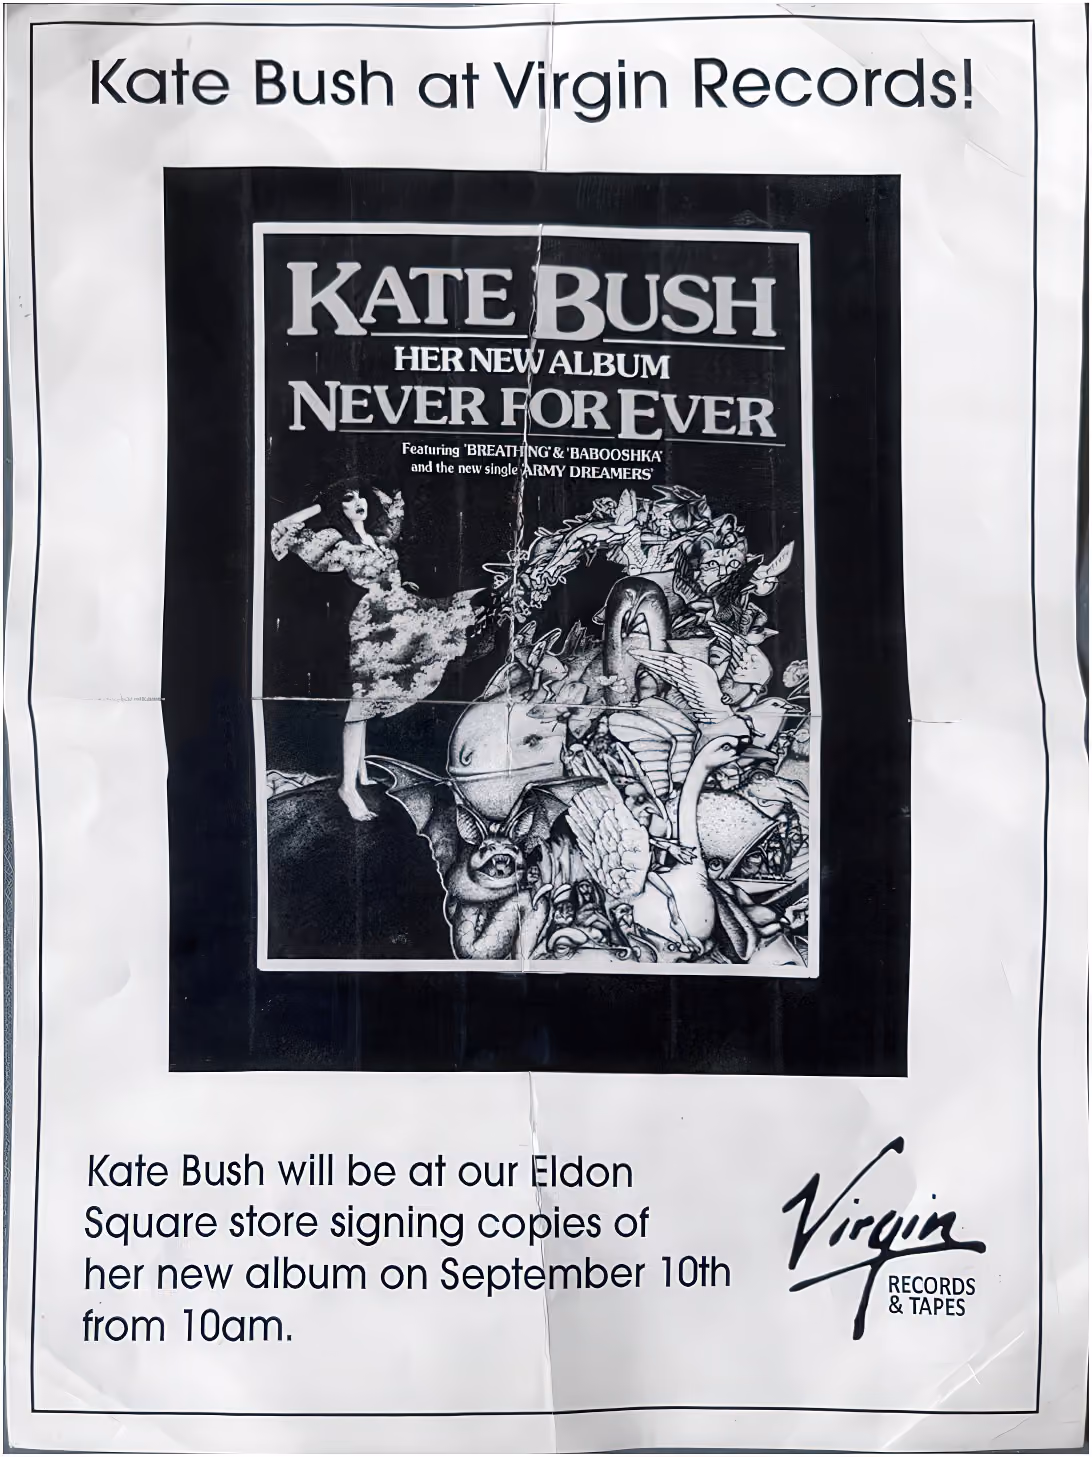 Kate Bush at Virgin Records!
KATE BUSH
HER NEW ALBUM
NEVER FOR EVER
Featuring 'BREATHING' & 'BABOOSHKA'
and the new single 'ARMY DREAMERS'
Kate Bush will be at our Eldon
Square store signing copies of
her new album on September 10th
from 10am.
Virgin
RECORDS
& TAPES